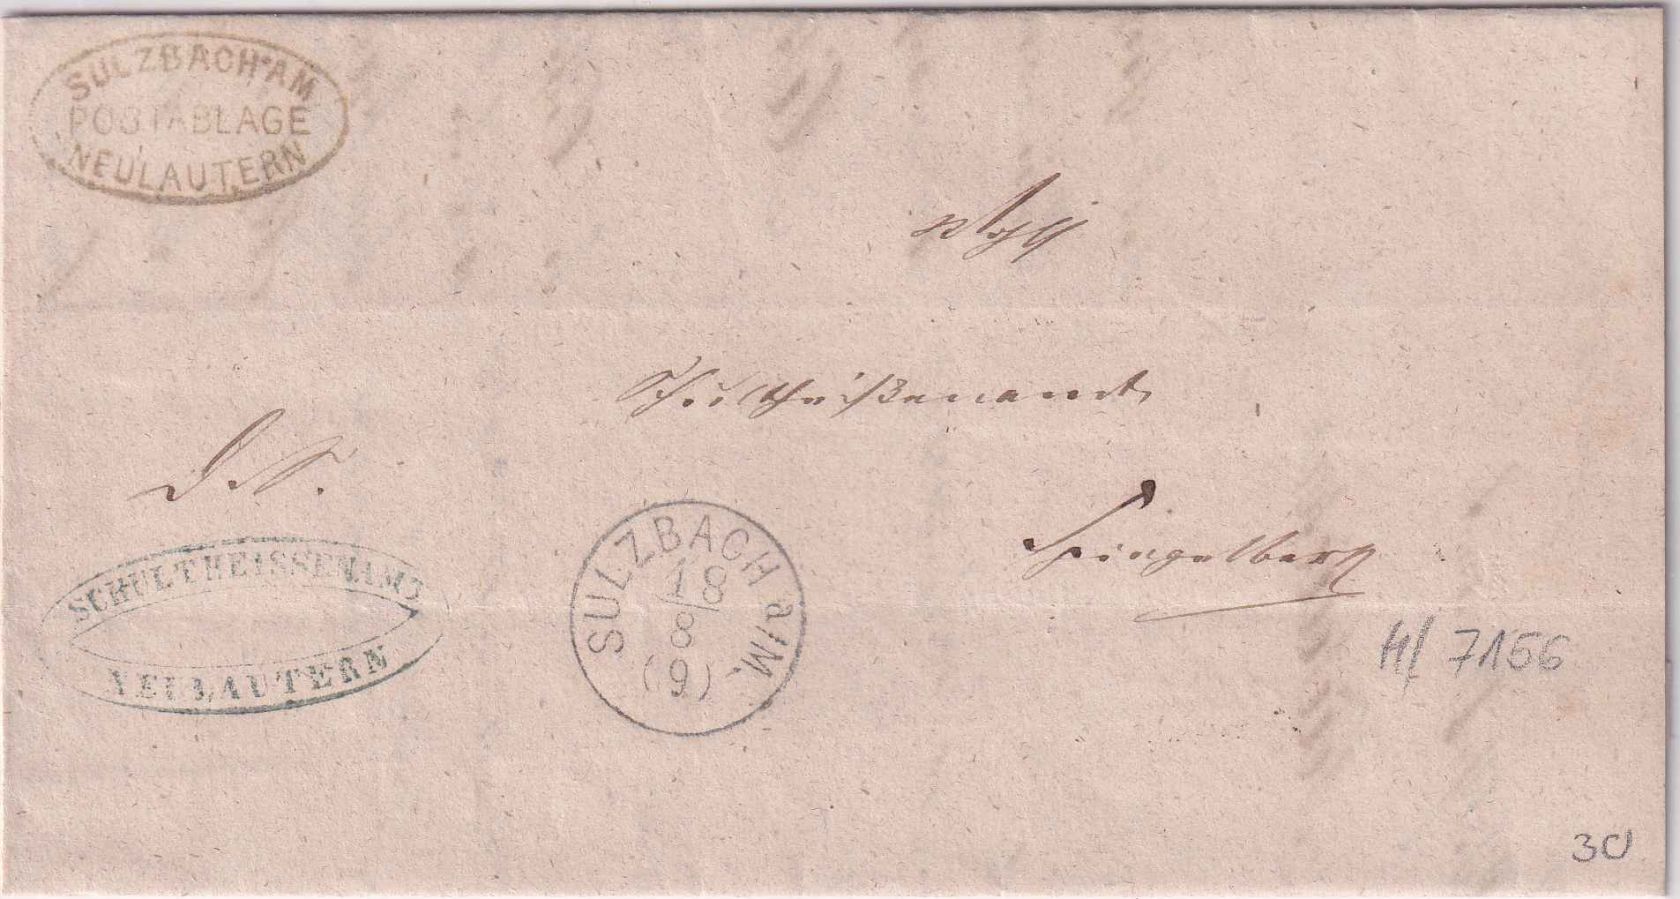 SULZBACH AM
POSTABLAGE
NEULAUTERN
Schultheißenamt
D. S.
SCHULTHEISSENAMT
NEULAUTERN
SULZBACH a/M.
18
8
(9)
7156
30